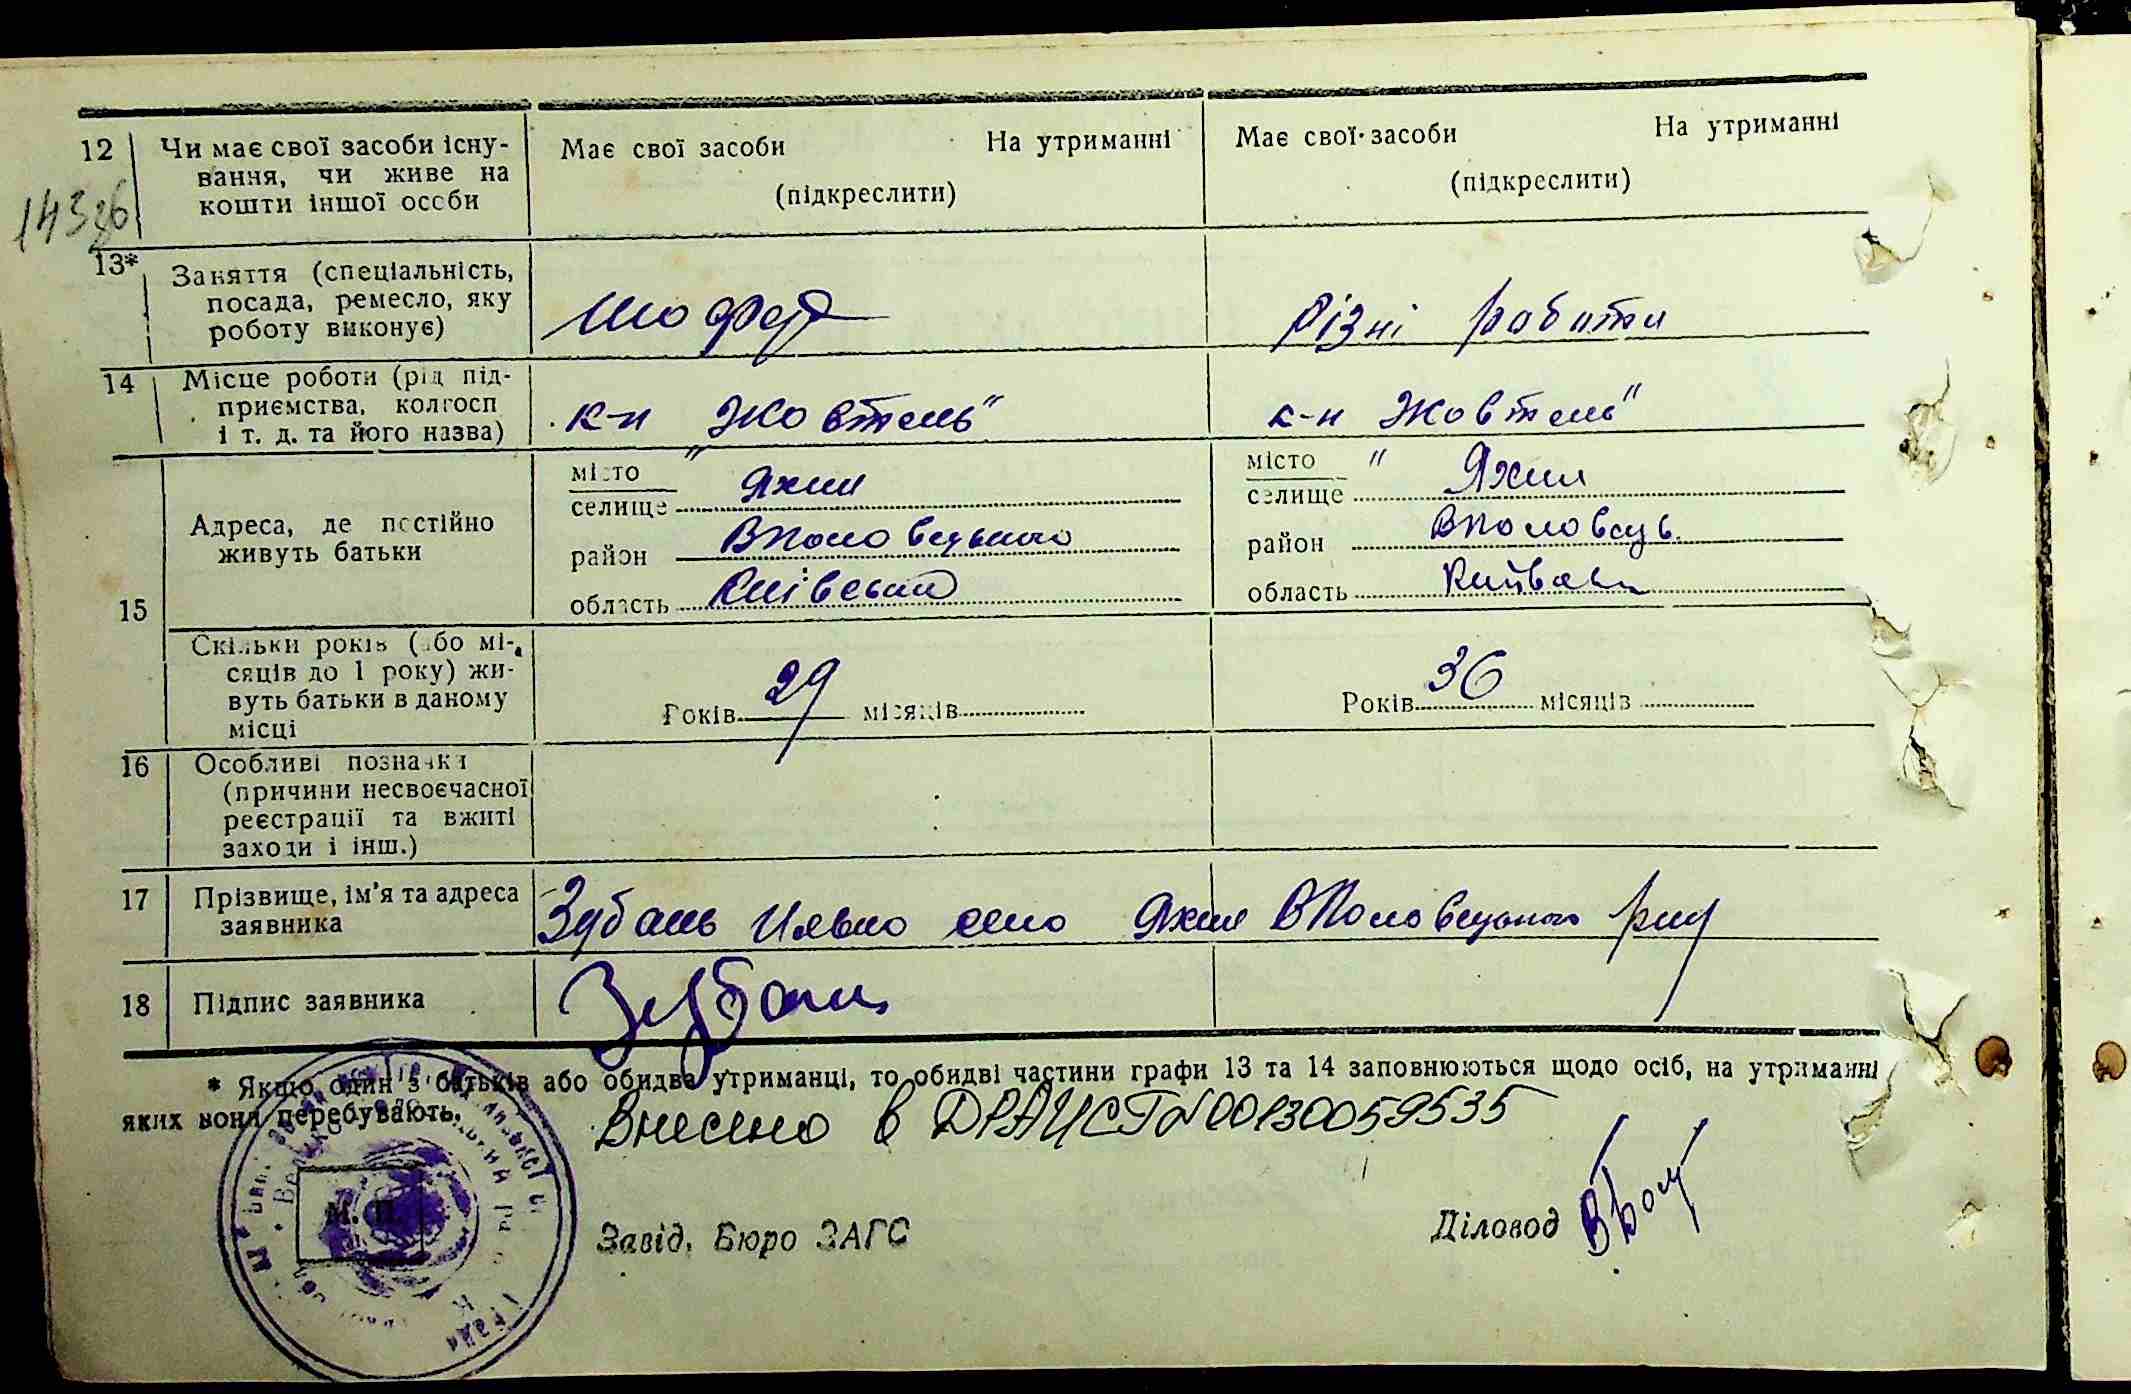 12 Чи має свої засоби існу-
вання, чи живе на
кошти іншої особи
Має свої засоби На утриманні
(підкреслити)
Має свої засоби На утриманні
(підкреслити)
13* Заняття (спеціальність,
посада, ремесло, яку
роботу виконує)
шофер
різні роботи
14 Місце роботи (рід під-
приємства, колгосп
і т. д. та його назва)
к-п „Жовтень"
к-п „Жовтень"
15 Адреса, де постійно
живуть батьки
місто
селище Яхни
район
область Київський
місто
селище Яхни
район
область
Скільки років (або мі-
сяців до 1 року) жи-
вуть батьки в даному
місці
Років 29 місяців
Років 36 місяців
16 Особливі позначки
(причини несвоєчасної
реєстрації та вжиті
заходи і інш.)
17 Прізвище, ім'я та адреса
заявника
Зубань село Яхни
18 Підпис заявника
Зубань
* Якщо один з батьків або обидва утриманці, то обидві частини графи 13 та 14 заповнюються щодо осіб, на утриманні
яких вони перебувають.
Внесено в ДРАЦСГ N00130059535
М. П.
Завід. Бюро ЗАГС
Діловод